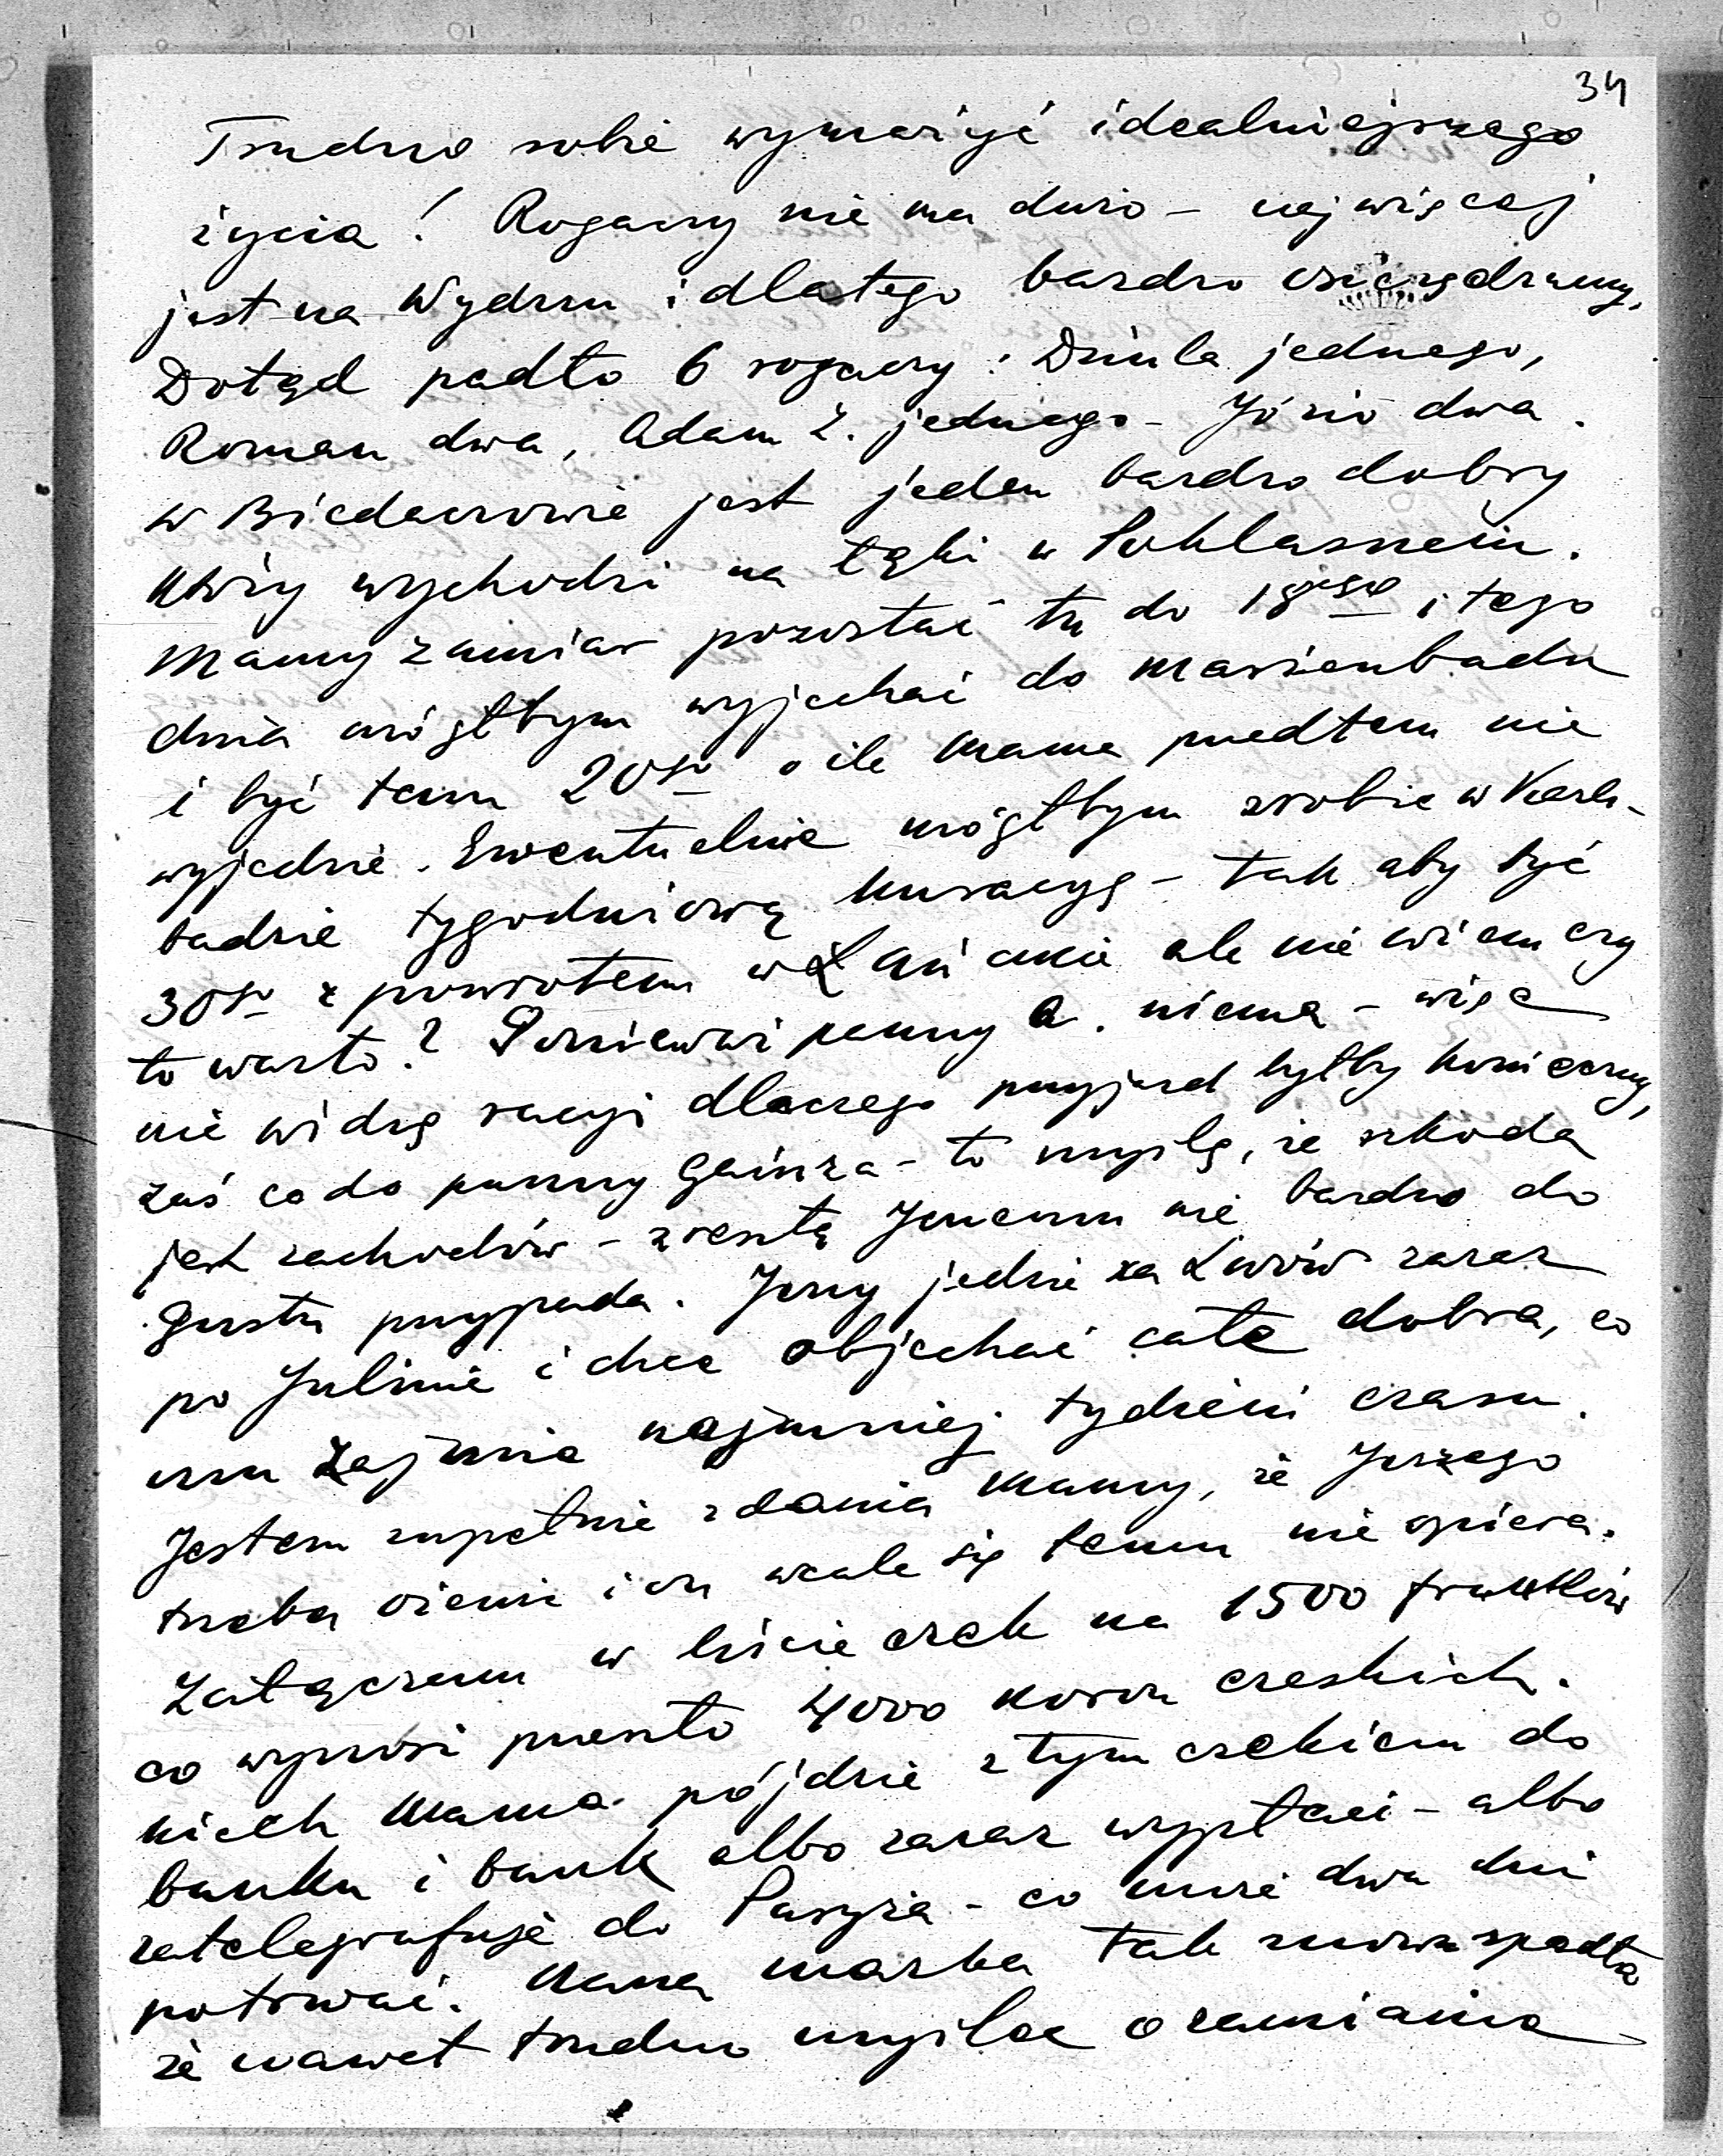 34
Trudno sobie wymarzyć idealniejszego
życia! Rogaczy nie ma dużo – najwięcej
jest na Wydrzu i dlatego bardzo oszczędzamy.
Dotąd padło 6 rogaczy: Dziula jednego,
Roman dwa, Adam Z. jednego – Józio dwa.
w Biedaczowie jest jeden bardzo dobry
który wychodzi na łąki w
Mamy zamiar pozostać tu do 18go i tego
dnia mógłbym wyjechać do Marienbadu
i być tam 20go o ile Mama przedtem nie
wyjedzie. Ewentualnie mógłbym zrobić w Karls-
badzie tygodniową kuracyę – tak aby być
30go z powrotem w Łańcucie ale nie wiem czy
to warto? Ponieważ panny A. niema – więc
nie widzę racyi dlaczego przyjazd byłby konieczny,
zaś co do panny Gainza – to myślę, że szkoda
jest zachodów – zresztą Jurcemu nie bardzo do
gustu przypada. Jerzy jedzie za Lwów zaraz
po Julinie i chce objechać całe dobra, co
mu zajmie najmniej tydzień czasu.
Jestem zupełnie zdania Mamy, że Jerzego
trzeba ożenić i on wcale się temu nie opiera.
Załączam w liście czek na 1500 franków
co wynosi przeszło 4000 koron czeskich.
niech Mama pójdzie z tym czekiem do
banku i bank albo zaraz wypłaci – albo
zatelegrafuje do Paryża – co może dwa dni
potrwać. Nasza marka tak znowu spadła
że nawet trudno myśleć o zamianie